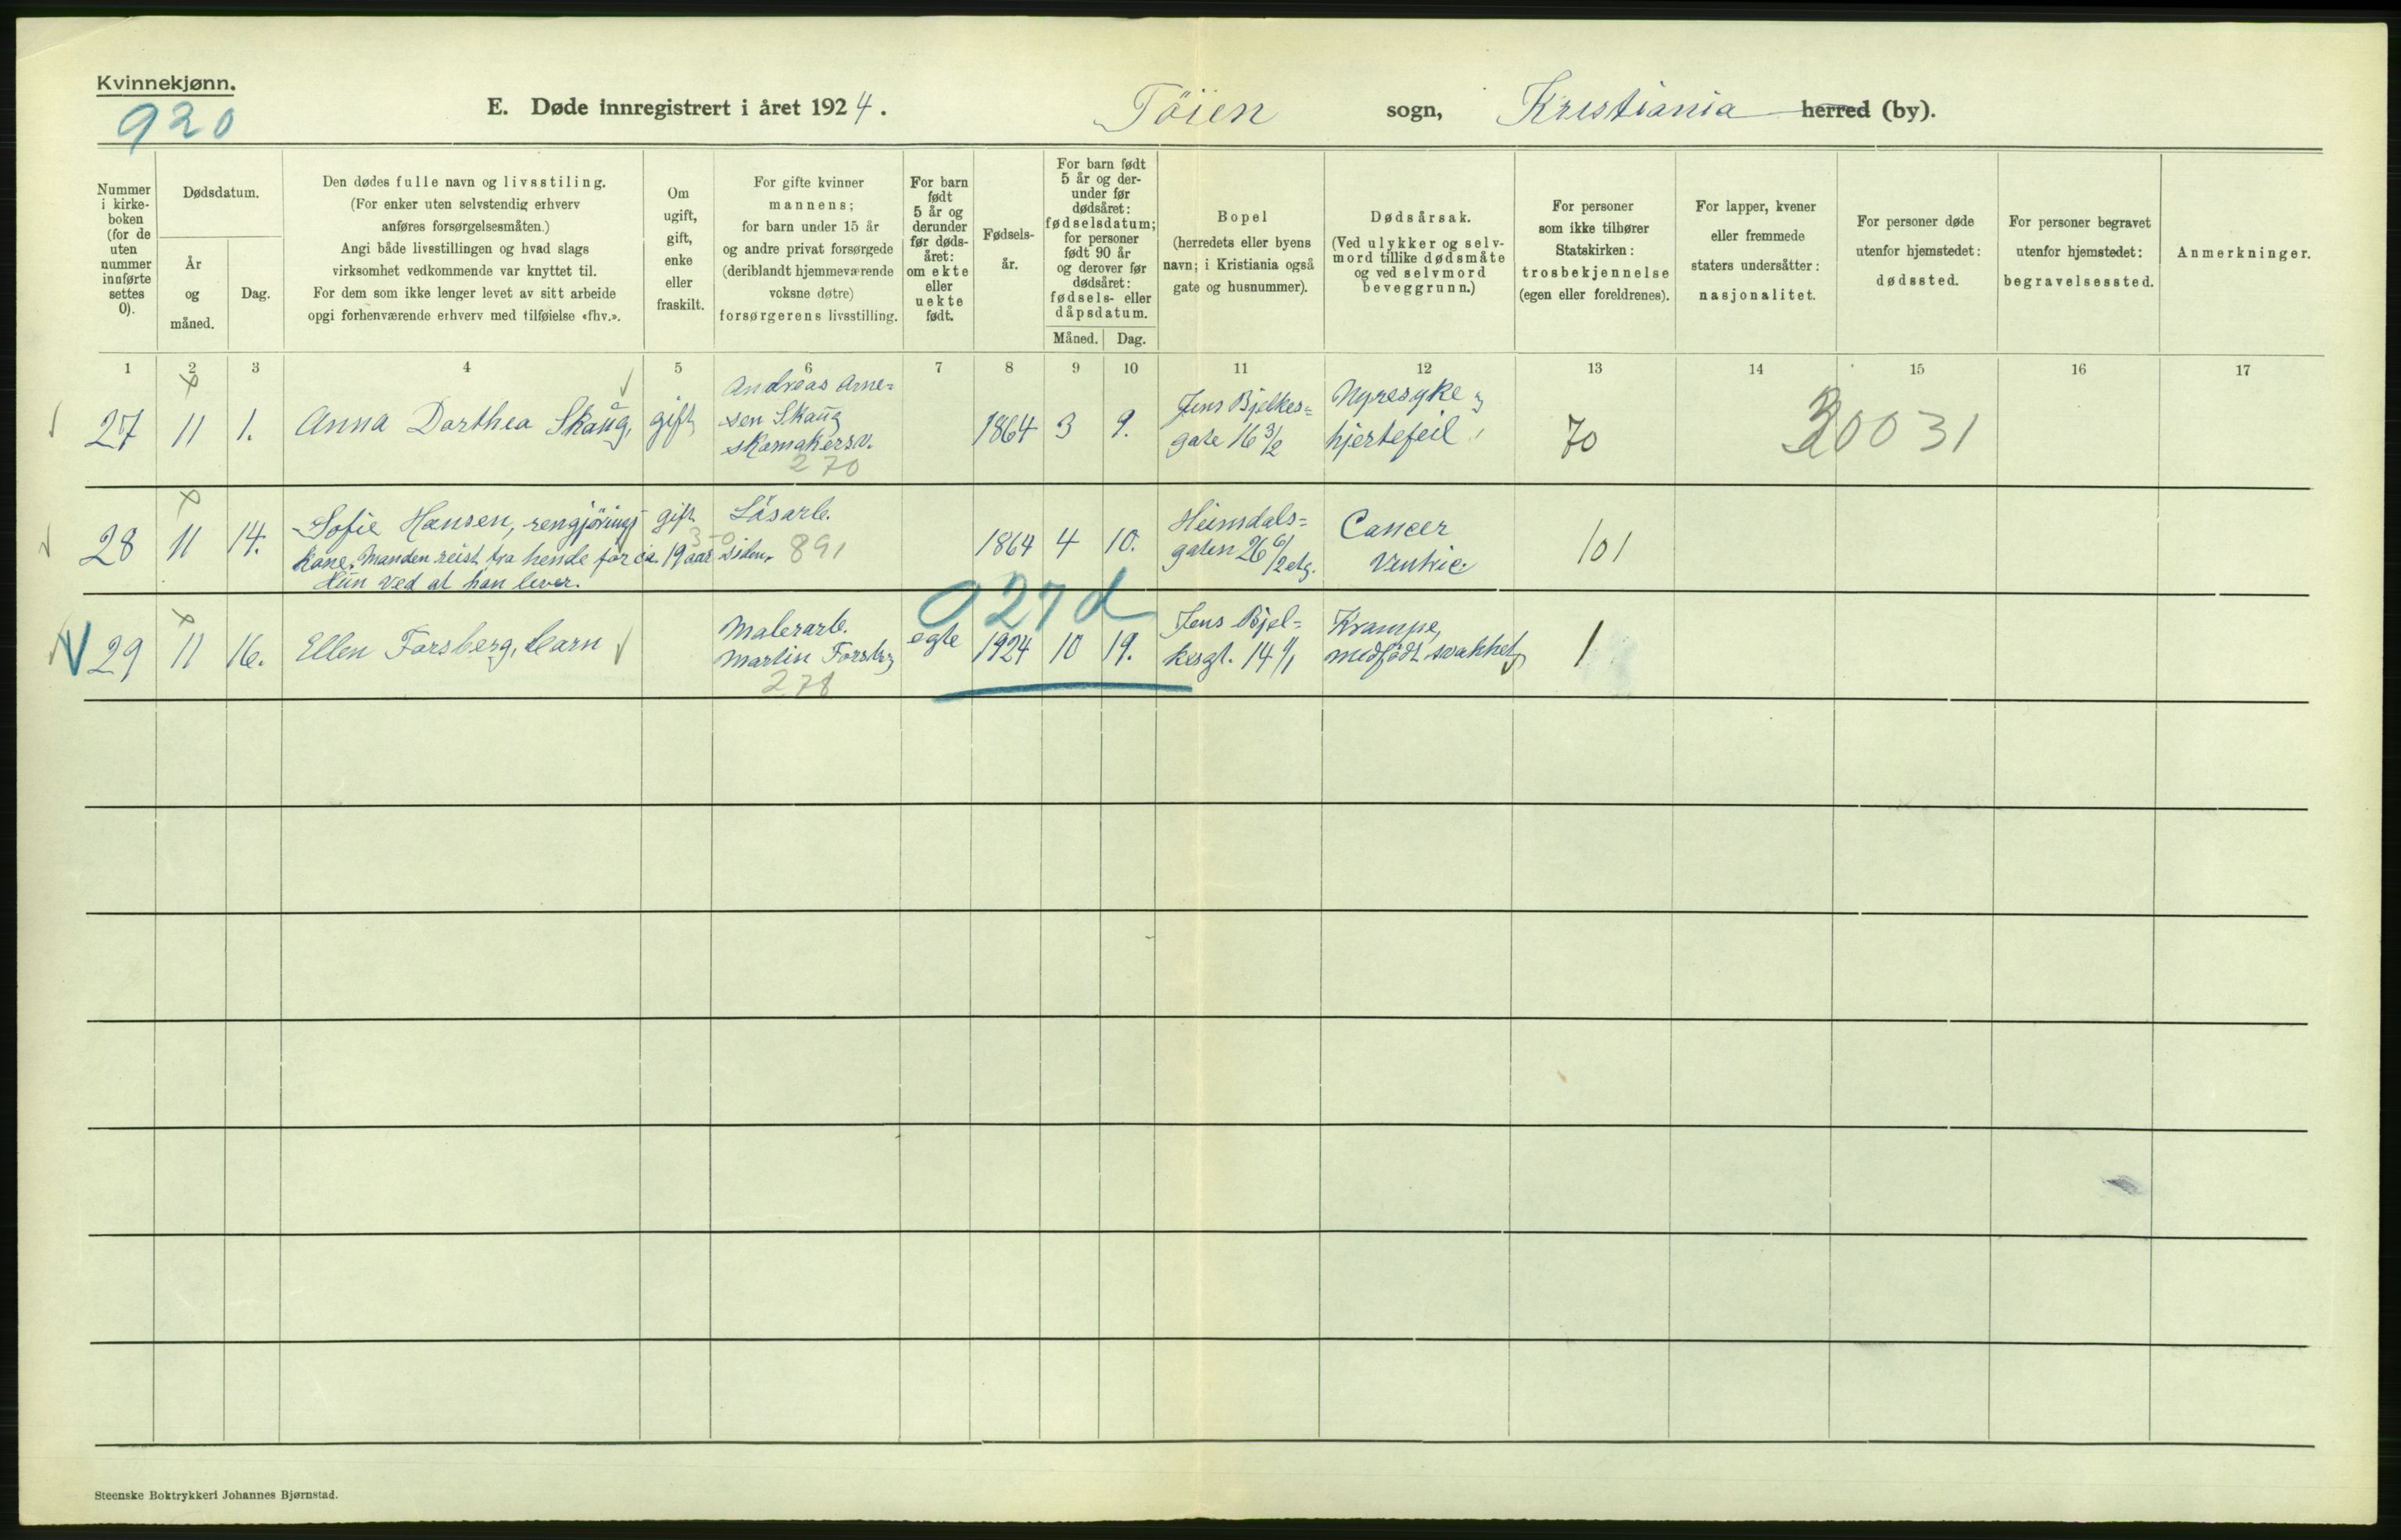 Kvinnekjønn.
920
E. Døde innregistrert i året 1924.
Töien sogn, Kristiania herred (by).
Nummer i kirke- boken (for de uten nummer innførte settes 0).
Dødsdatum.
År og måned.
Dag.
Den dødes fulle navn og livsstiling.
(For enker uten selvstendig erhverv
anføres forsørgelsesmåten.)
Angi både livsstillingen og hvad slags
virksomhet vedkommende var knyttet til.
For dem som ikke lenger levet av sitt arbeide
opgi forhenværende erhverv med tilføielse «fhv.».
Om
ugift,
gift,
enke
eller
fraskilt.
For gifte kvinner
mannens;
for barn under 15 år
og andre privat forsørgede
(deriblandt hjemmeværende
voksne døtre)
forsørgerens livsstilling.
For barn
født
5 år og
derunder
før døds-
året:
om ekte
eller
uekte
født.
Fødsels-
år.
For barn født
5 år og der-
under før
dødsåret:
fødselsdatum;
for personer
født 90 år
og derover før
dødsåret:
fødsels- eller
dåpsdatum.
Måned. Dag.
Bopel
(herredets eller byens
navn; i Kristiania også
gate og husnummer).
Dødsårsak.
(Ved ulykker og selv-
mord tillike dødsmåte
og ved selvmord
beveggrunn.)
For personer
som ikke tilhører
Statskirken:
trosbekjennelse
(egen eller foreldrenes).
For lapper, kvener
eller fremmede
staters undersåtter:
nasjonalitet.
For personer døde
utenfor hjemstedet:
dødssted.
For personer begravet
utenfor hjemstedet:
begravelsessted.
Anmerkninger.
1 2 3 4 5 6 7 8 9 10 11 12 13 14 15 16 17
27 11 1. Anna Dorthea Skaug, gift
Andreas Arne=
sen Skaug
skomakersv.
270
1864 3 9.
Jens Bjelkes=
gate 16 3/2
Nyresyke og
hjertefeil
70
30031
28 11 14.
Sofie Hansen, rengjörings
kone. Manden reist fra hende for ca. 19 aar siden.
Hun ved at han lever.
gift
Lösarb.
891
1864 4 10.
Heimdals=
gaten 26 6/2 etg.
Cancer
Ventric.
101
027d
29 11 16. Ellen Forsberg, barn
Malerarb.
Martin Forsberg
278
egte 1924 10 19.
Jens Bjel=
kesgt. 14 1/1
Krampe,
medfödt svakhet
1
Steenske Boktrykkeri Johannes Bjørnstad.